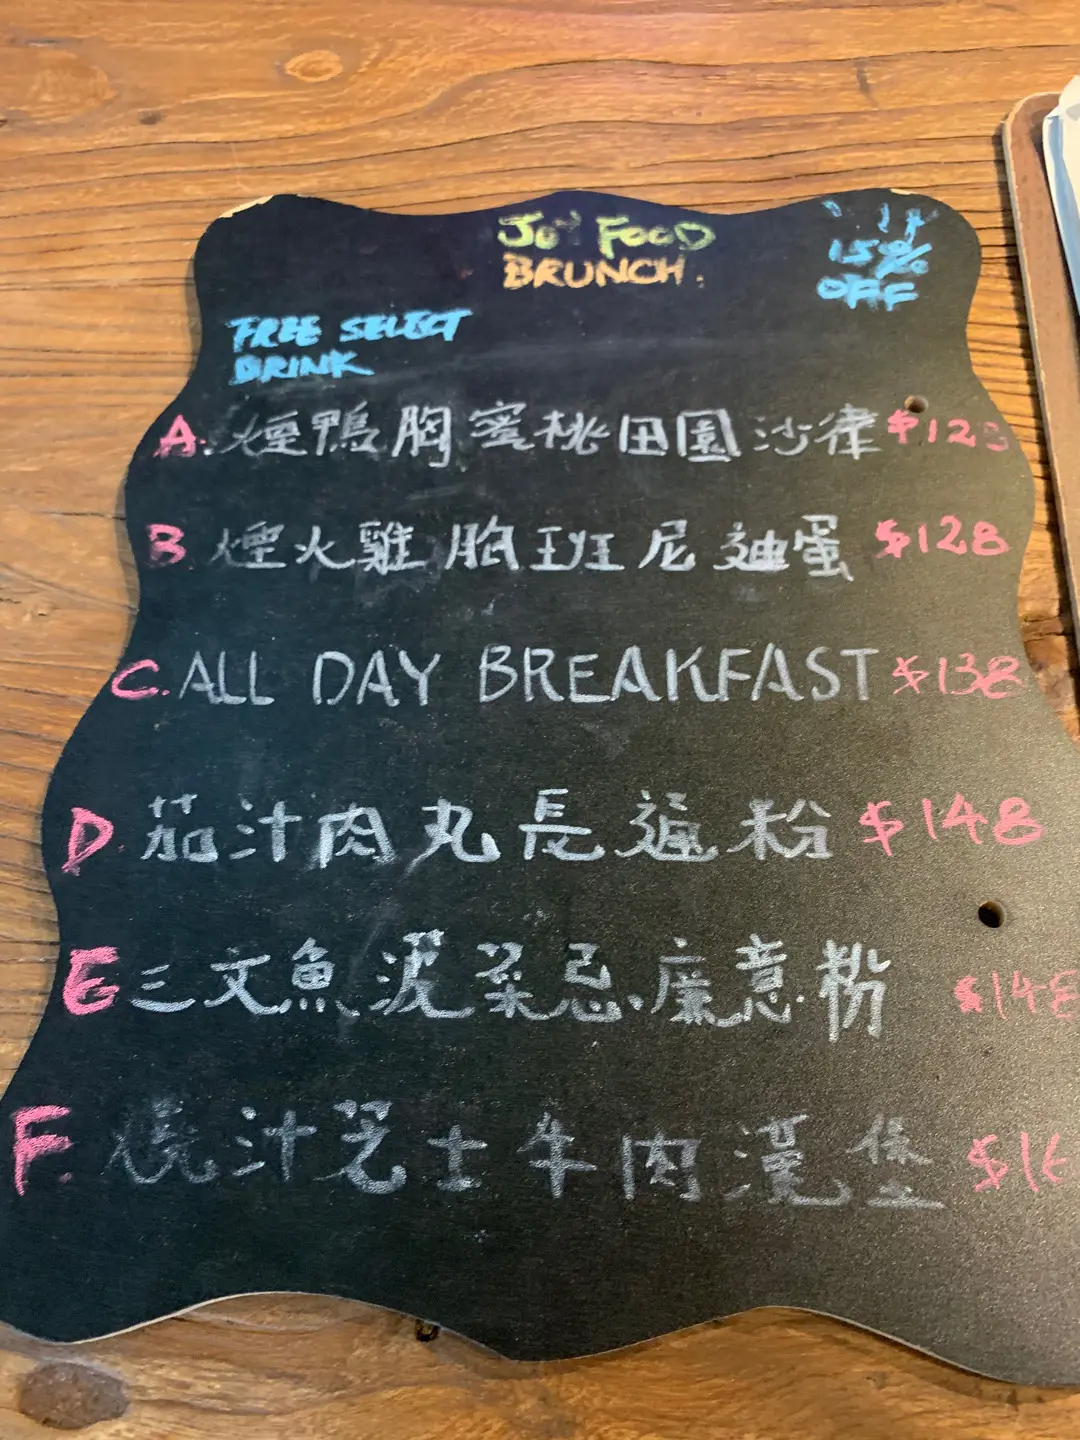 JOY FOOD
BRUNCH.
15%
OFF
FREE SELECT
DRINK
A. 煙鴨胸蜜桃田園沙律 $128
B 煙火雞胸班尼迪蛋 $128
C. ALL DAY BREAKFAST $138
D. 茄汁肉丸長通粉 $148
E 三文魚菠菜忌廉意粉 $148
F. 燒汁芝士牛肉漢堡